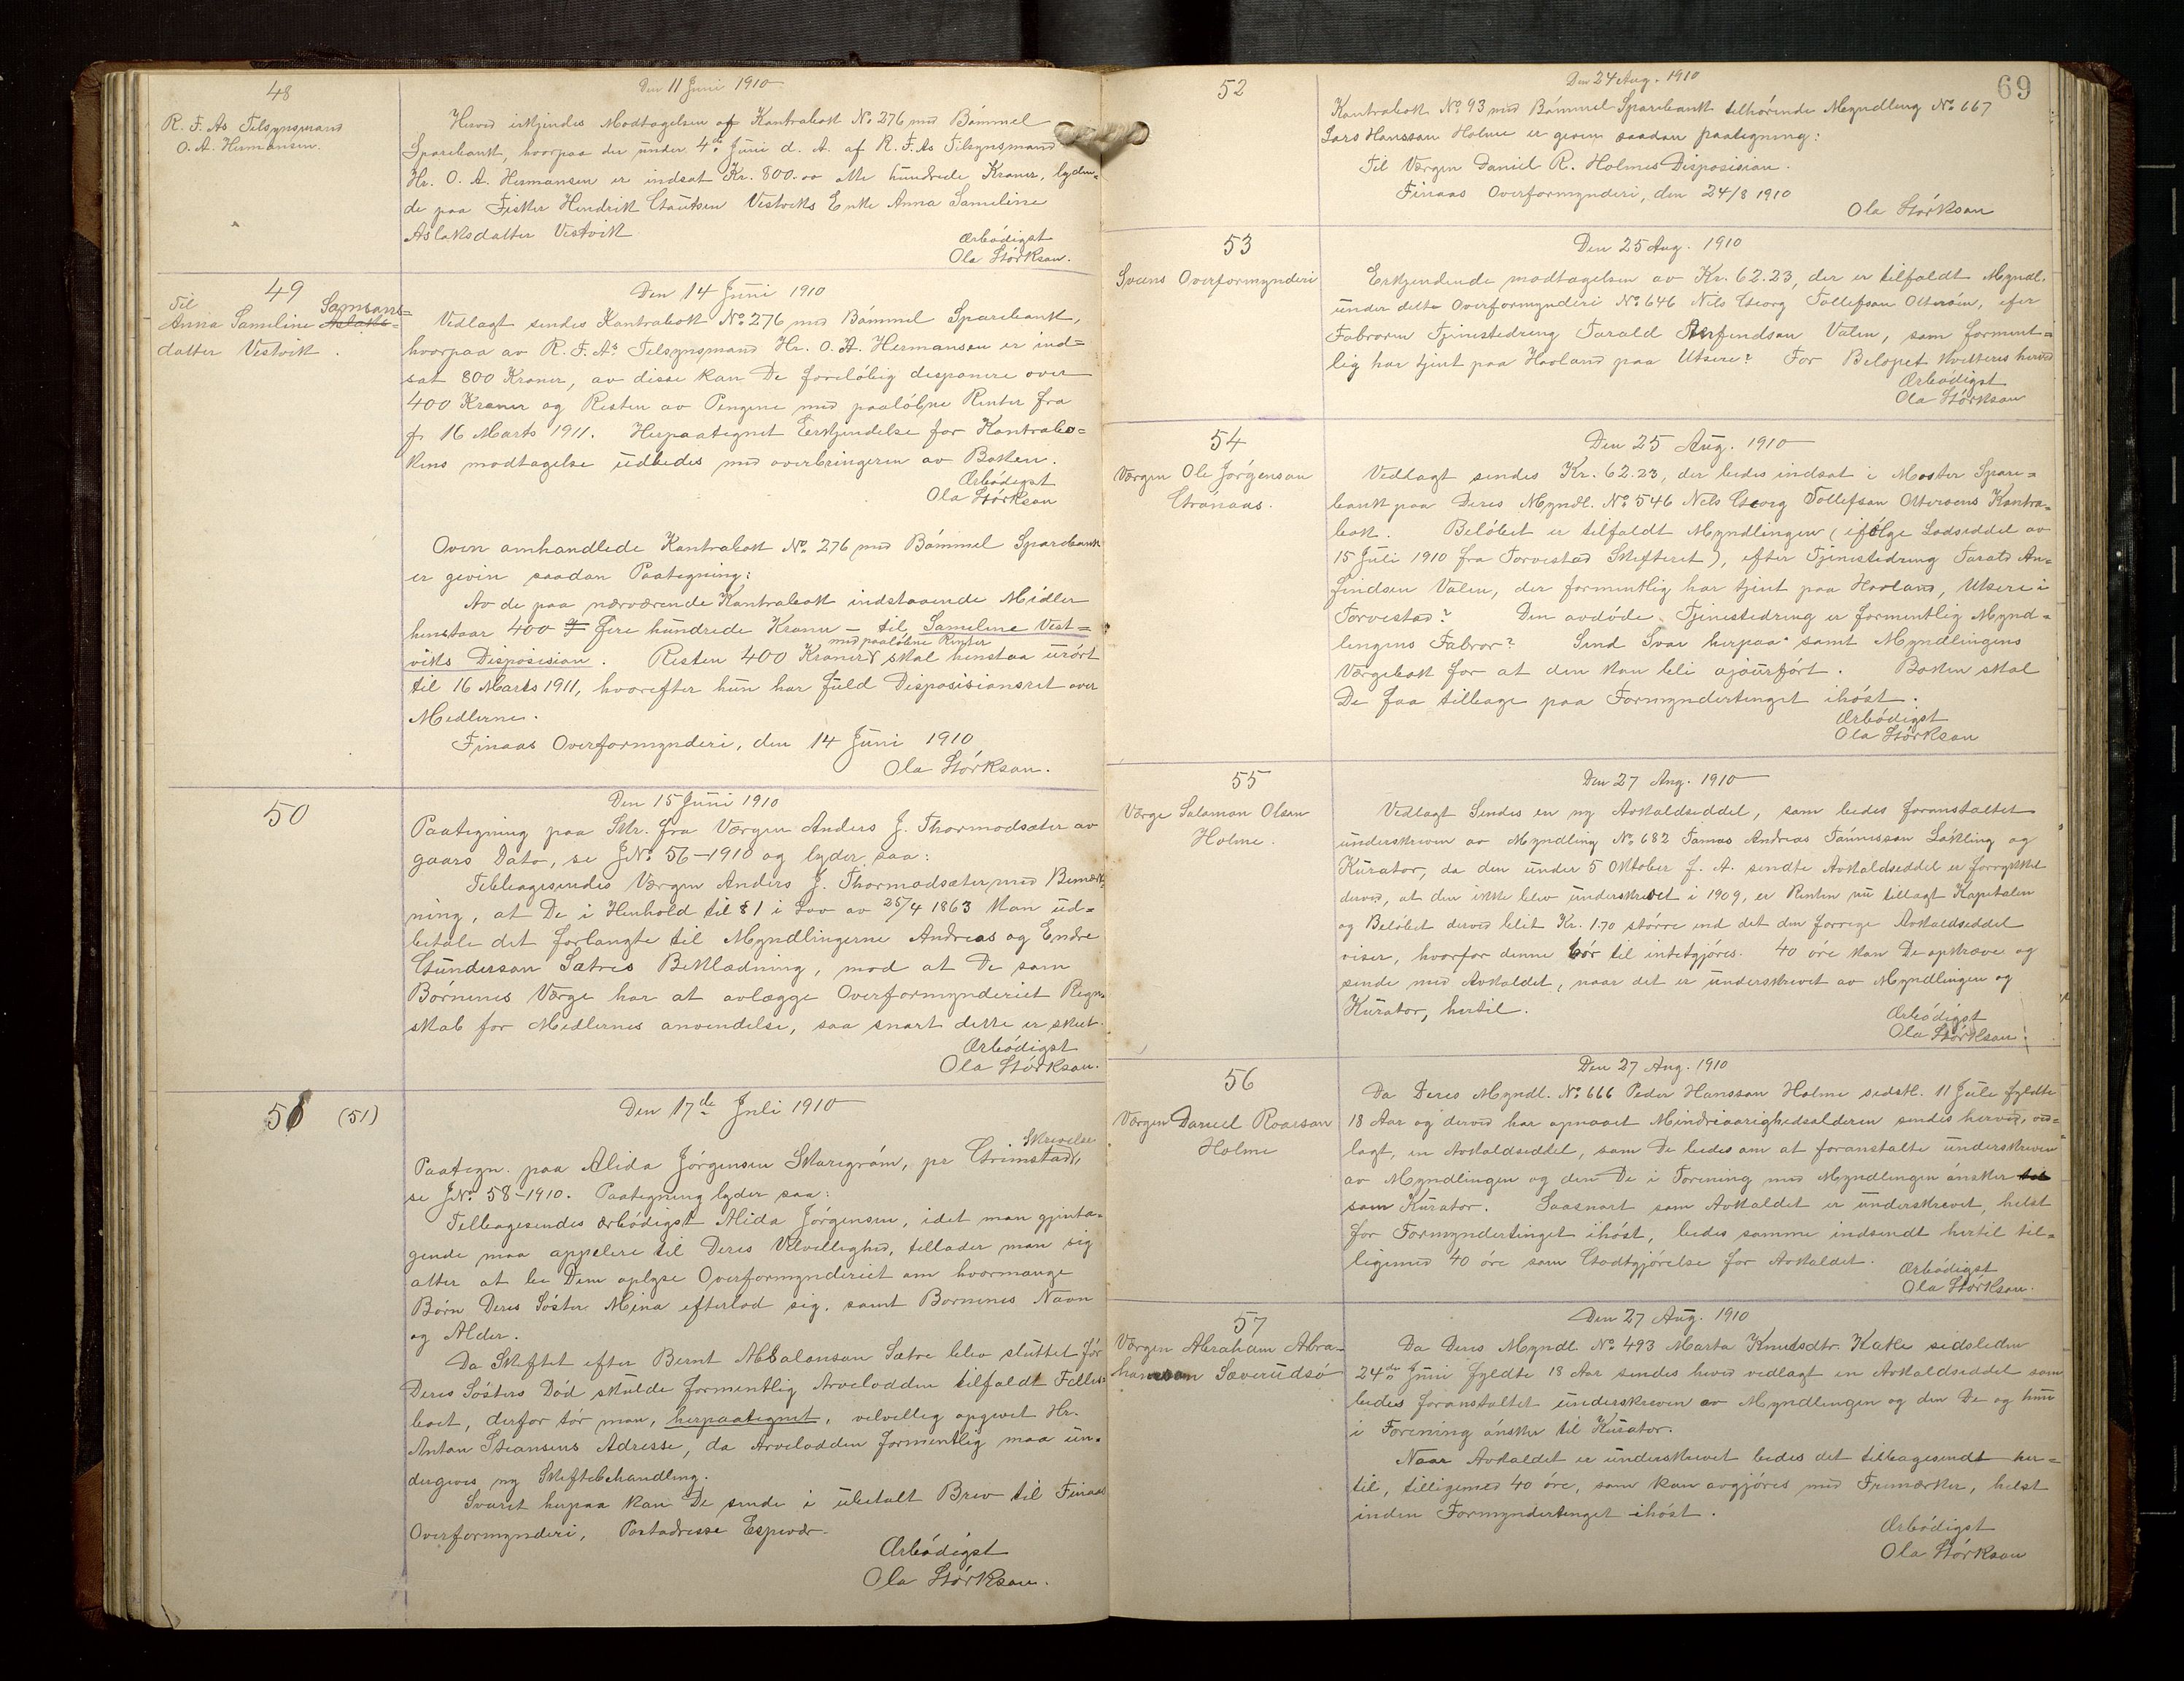 48
R. F. As Tilsynsmand
O. A. Hermansen.
Den 11 Juni 1910
Herved erkjendes Modtagelsen af Kontrabok No 276 med Bömmel
Sparebank, hvorpaa der under 4de Juni d. A. af R. F. As Tilsynsmand
Hr. O. A. Hermansen er indsat Kr. 800.00 otte hundrede Kroner, lyden-
de paa Fisker Hendrik Gautsen Vestviks Enke Anna Sameline
Aslaksdatter Vestvik
Ærbödigst
Ola Störkson.
49
Til
Anna Sameline Aslaks- Samsons=
datter Vestvik.
Den 14 Juni 1910
Vedlagt sendes Kontrabok No 276 med Bömmel Sparebank,
hvorpaa av R. F. As Tilsynsmand Hr. O. A. Hermansen er ind=
sat 800 Kroner, av disse kan De forelöbig disponere over
400 Kroner og Resten av Pengene med paalöbne Renter fra
f. 16 Marts 1911. Herpaategnet Erkjendelse for Kontrabo=
kens modtagelse udbedes med overbringeren av Boken.
Ærbödigst
Ola Störkson
Oven omhandlede Kontrabok No 276 med Bömmel Sparebank
er given saadan Paategning:
Av de paa nærværende Kontrabok indstaaende Midler
henstaar 400 Fire hundrede Kroner - til Sameline Vest=
viks Disposision. Resten 400 Kroner med paalöbne Renter skal henstaa urört
til 16 Marts 1911, hvorefter hun har fuld Disposisionsret over
Medlerne.
Finaas Overformynderi, den 14 Juni 1910
Ola Störkson.
50
Den 15 Juni 1910
Paategning paa Skr. fra Værgen Anders J. Thormodsæter av
gaars Dato, se JNo. 56-1910 og lyder saa:
Tilbagesendes Værgen Anders J. Thormodsæter, med Bemærk-
ning, at De i Henhold til § 1 i Lov av 25/4 1863 kan ud=
betale det forlangte til Myndlingerne Andreas og Endre
Gunderson Sætres Beklædning, mod at De som
Börnenes Værge har at avlægge Overformynderiet Regn-
skab for Medlernes anvendelse, saa snart dette er skeet.
Ærbödigst
Ola Störkson.
51 (51)
Den 17de Juli 1910
Paategn. paa Alida Jörgensen Skaregröm, pr Grimstads Skrivelse,
se JNo. 58-1910. Paategning lyder saa:
Tilbagesendes ærbödigst Alida Jörgensen, idet man gjenta-
gende maa appelere til Deres Velvellighed, tillader man sig
atter at be Dem oplyse Overformynderiet om hvormange
Börn Deres Söster Mina efterlod sig, samt Bornenes Navn
og Alder.
Da Skiftet efter Bernt Absalonson Sætre blev sluttet för
Deres Sösters Död skulde formentlig Arvelodden tilfaldt Felles=
boet, derfor tör man, herpaategnet, velvellig opgivet Hr.
Anton Steansens Adresse, da Arvelodden formentlig maa un-
dergives ny Skiftebehandling.
Svaret herpaa kan De sende i ubetalt Brev til Finaas
Overformynderi, Postadresse Espevær.
Ærbödigst
Ola Störkson.
69
52
Den 24 Aug. 1910
Kontrabok No 93 med Bömmel Sparebank tilhörende Myndling No 667
Lars Hansson Holme er given saadan paategning:
Til Værgen Daniel R. Holmes Disposision.
Finaas Overformynderi, den 24/8 1910
Ola Störkson
53
Sveens Overformynderi
Den 25 Aug. 1910
Erkjendende modtagelsen av Kr. 62.23, der er tilfaldt Myndl.
under dette Overformynderi No 646 Nels Georg Tollefson Ottersöen, efter
Fabroren Tjenestedreng Tarald Anfindson Valen, som forment=
lig har tjent paa Hovland paa Utsire? For Belopet kvitteres herved
Ærbödigst
Ola Störkson
54
Værgen Ole Jörgenson
Grönaas.
Den 25 Aug. 1910
Vedlagt sendes Kr. 62.23, der bedes indsat i Moster Spare=
bank paa Deres Myndl. No 546 Nels Georg Tollefson Ottersoens Kontra-
bok. Belöbet er tilfaldt Myndlingen (ifölge Lodseddel av
15 Juli 1910 fra Torvestad Skifteret), efter Tjenestedreng Tarald An-
findsen Valen, der formentlig har tjent paa Hovland, Utsire i
Torvestad? Den avdöde Tjenestedreng er formentlig Mynd-
lingens Fabror? Send Svar herpaa samt Myndlingens
Værgebok for at den kan bli ajourfört. Boken skal
De faa tilbage paa Formyndertinget ihöst.
Ærbödigst
Ola Störkson
55
Værge Salamon Olson
Holme.
Den 27 Aug. 1910
Vedlagt Sendes en ny Avkaldseddel, som bedes foranstaltet
underskreven av Myndling No 682 Tomas Andreas Tönnesson Lökling og
Kurator, da den under 5 Oktober f. A. sendte Avkaldseddel er forrykket
derved, at den ikke blev underskrevet i 1909, er Renten nu tillagt Kapitalen
og Belöbet derved blit Kr. 1.70 större end det den forrige Avkaldseddel
viser, hvorfor denne bör til intetgjöres. 40 öre kan De opkræve og
sende med Avkaldet, naar det er underskrevet av Myndlingen og
Kurator, hertil.
Ærbödigst
Ola Störkson.
56
Værgen Daniel Roarson
Holme
Den 27 Aug. 1910
Da Deres Myndl. No. 666 Peder Hansson Holme sidstl. 11 Jule fyldte
18 Aar og derved har opnaaet Mindreaarighedsalderen sendes herved, ved-
lagt, en Avkaldseddel, som De bedes om at foranstalte underskreven
av Myndlingen og den De i Forening med Myndlingen önsker
som Kurator. Saasnart som Avkaldet er underskrevet, helst
for Formyndertinget ihöst, bedes samme indsendt hertil til=
ligemed 40 öre som Godtgjörelse for Avkaldet.
Ærbödigst
Ola Störkson.
57
Værgen Abraham Abra-
hamson Sæverudsö
Den 27 Aug. 1910
Da Deres Myndl. No 493 Marta Knudsdtr. Kalle sidsleden
24de Juni fyldte 18 Aar sendes herved vedlagt en Avkaldseddel som
bedes foranstaltet underskreven av Myndlingen og den De og hun
i Forening önsker til Kurator.
Naar Avkaldet er underskrevet bedes det tilbagesendt her=
til, tilligemed 40 öre, som kan avgjöres med Frimærker, helst
inden Formyndertinget ihöst.
Ærbödigst
Ola Störkson